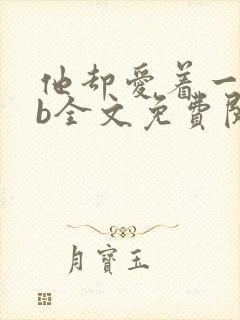 他却爱着一
b全文免費閱
月寶玉